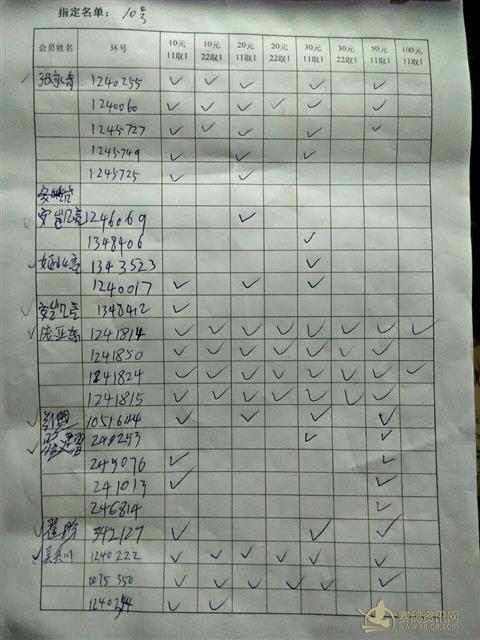 指定名单： 10号
会员姓名 环号 10元11取1 10元22取1 20元11取1 20元22取1 30元11取1 30元22取1 50元11取1 100元11取1
1240255 ✓ ✓ ✓ ✓ ✓
1240060 ✓ ✓ ✓ ✓ ✓ ✓
1245727 ✓ ✓ ✓ ✓ ✓
1245749 ✓ ✓ ✓
1245725 ✓ ✓
1246069 ✓
1348406 ✓
1343523 ✓
1240017 ✓ ✓ ✓
1348412 ✓
✓ 庞亚东 1241814 ✓ ✓ ✓ ✓ ✓ ✓ ✓ ✓
1241850 ✓ ✓ ✓ ✓ ✓ ✓ ✓
1241824 ✓ ✓ ✓ ✓ ✓ ✓ ✓ ✓
1241815 ✓ ✓ ✓ ✓ ✓ ✓ ✓
1051644 ✓ ✓ ✓ ✓
240253 ✓ ✓
245076 ✓ ✓
241013 ✓ ✓
246814 ✓
342127 ✓ ✓ ✓
1240222 ✓ ✓ ✓ ✓ ✓ ✓
0075350 ✓ ✓ ✓ ✓ ✓ ✓
✓ ✓
赛鸽资讯网
www.saige.com